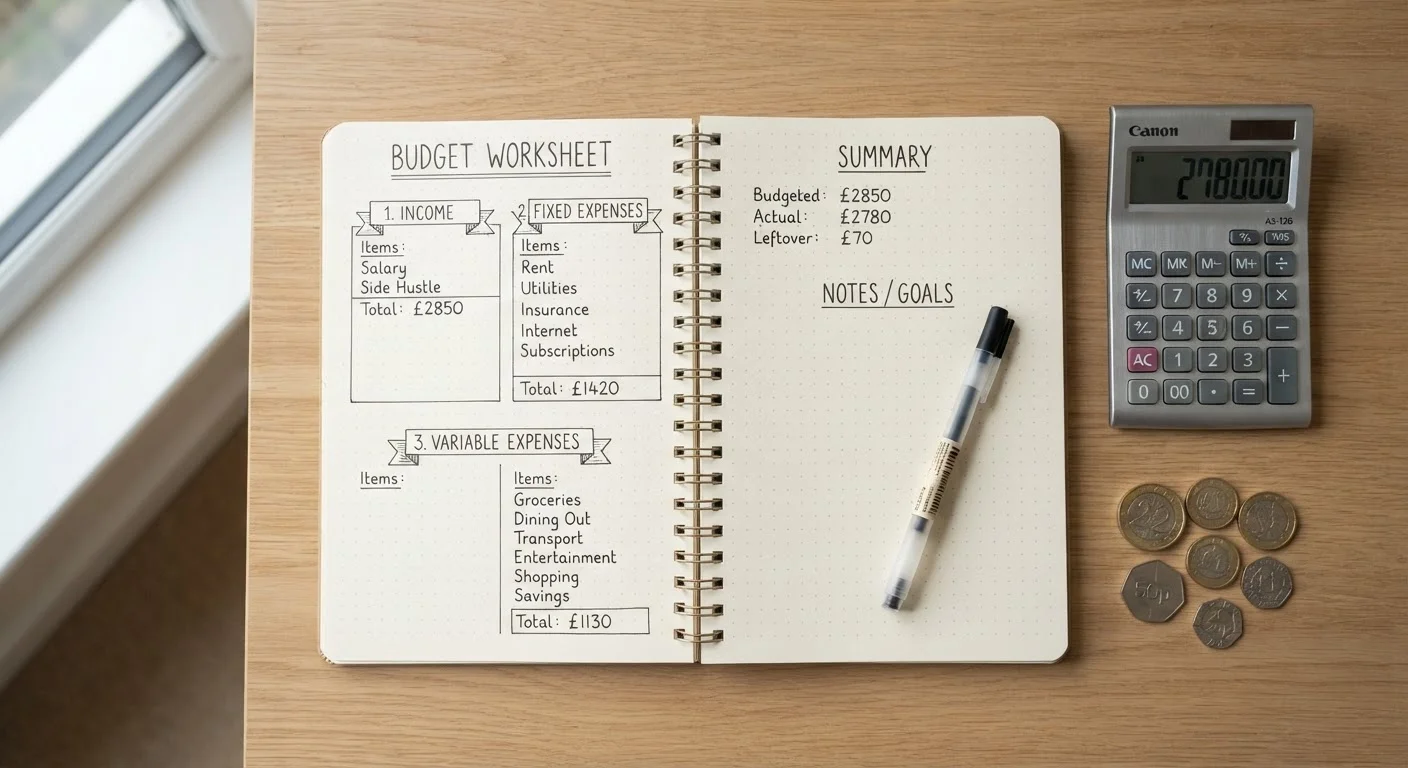 BUDGET WORKSHEET
1. INCOME
Items:
Salary
Side Hustle
Total: £2850
2 FIXED EXPENSES
Items:
Rent
Utilities
Insurance
Internet
Subscriptions
Total: £1420
3. VARIABLE EXPENSES
Items:
Items:
Groceries
Dining Out
Transport
Entertainment
Shopping
Savings
Total: £1130
SUMMARY
Budgeted: £2850
Actual: £2780
Leftover: £70
NOTES/GOALS
Canon
278000
AS-126
MC MK M- M+ ÷
7 8 9 ×
4 5 6 −
AC 1 2 3 +
0 00 · =